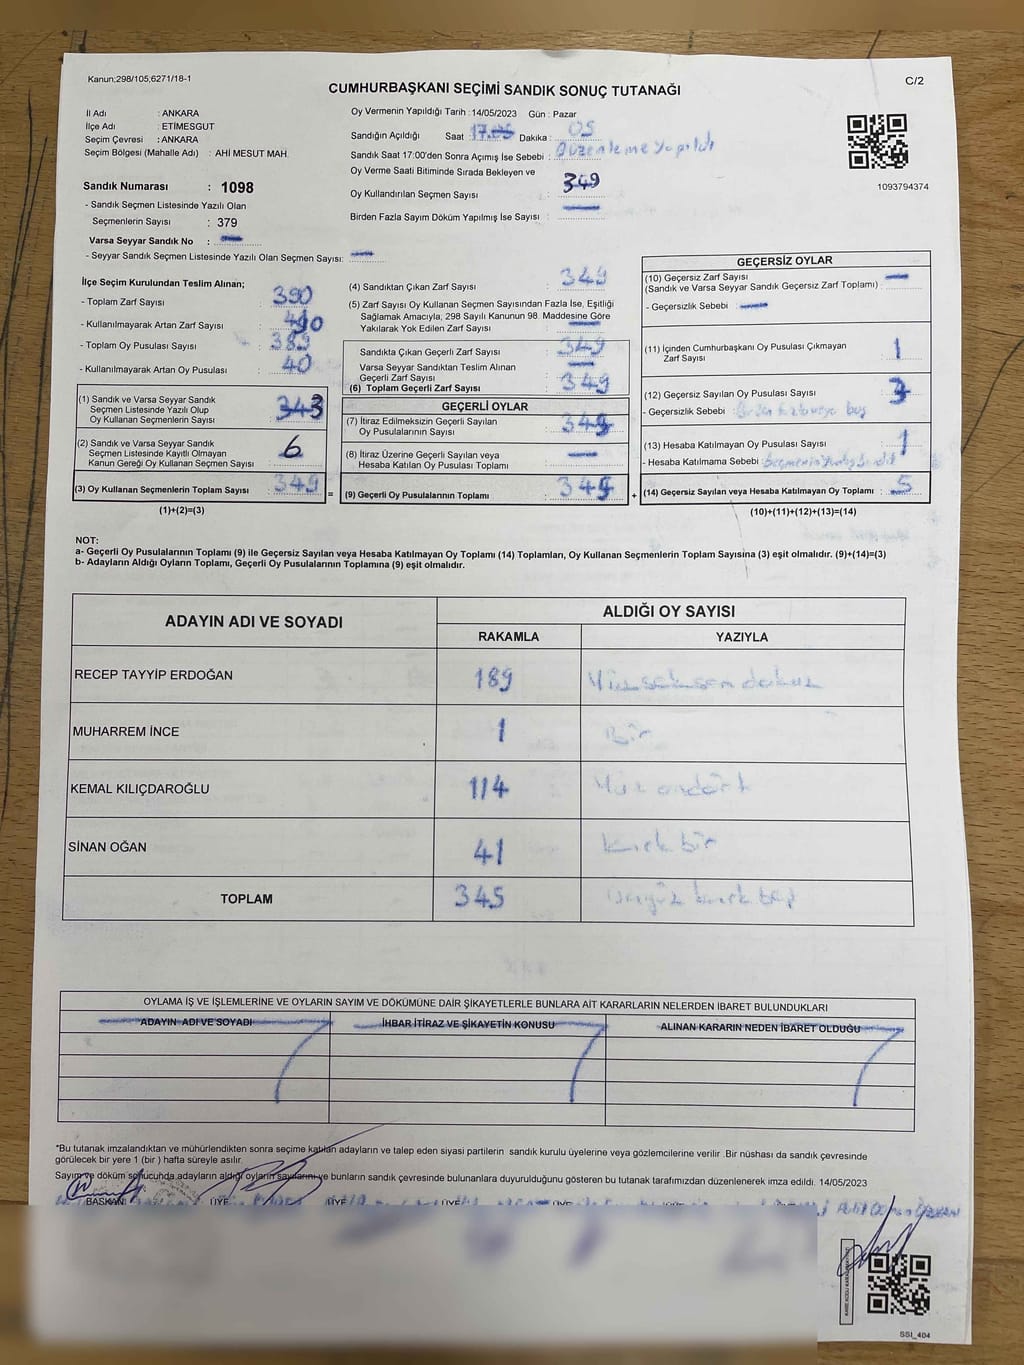 Kanun;298/105;6271/18-1
C/2
CUMHURBAŞKANI SEÇİMİ SANDIK SONUÇ TUTANAĞI
İl Adı : ANKARA
İlçe Adı : ETİMESGUT
Seçim Çevresi : ANKARA
Seçim Bölgesi (Mahalle Adı) : AHİ MESUT MAH.
Sandık Numarası : 1098
- Sandık Seçmen Listesinde Yazılı Olan
Seçmenlerin Sayısı : 379
Varsa Seyyar Sandık No :
- Seyyar Sandık Seçmen Listesinde Yazılı Olan Seçmen Sayısı:
Oy Vermenin Yapıldığı Tarih : 14/05/2023 Gün : Pazar
Sandığın Açıldığı Saat : 17 Dakika : 05
Sandık Saat 17:00'den Sonra Açımış İse Sebebi : Düzenleme yapıldı
Oy Verme Saati Bitiminde Sırada Bekleyen ve
Oy Kullandırılan Seçmen Sayısı : 349
Birden Fazla Sayım Döküm Yapılmış İse Sayısı :
1093794374
İlçe Seçim Kurulundan Teslim Alınan;
- Toplam Zarf Sayısı : 390
- Kullanılmayarak Artan Zarf Sayısı :
- Toplam Oy Pusulası Sayısı : 389
- Kullanılmayarak Artan Oy Pusulası : 40
(1) Sandık ve Varsa Seyyar Sandık
Seçmen Listesinde Yazılı Olup
Oy Kullanan Seçmenlerin Sayısı : 343
(2) Sandık ve Varsa Seyyar Sandık
Seçmen Listesinde Kayıtlı Olmayan
Kanun Gereği Oy Kullanan Seçmen Sayısı : 6
(3) Oy Kullanan Seçmenlerin Toplam Sayısı : 349
(1)+(2)=(3)
=
(4) Sandıktan Çıkan Zarf Sayısı : 349
(5) Zarf Sayısı Oy Kullanan Seçmen Sayısından Fazla İse, Eşitliği
Sağlamak Amacıyla; 298 Sayılı Kanunun 98. Maddesine Göre
Yakılarak Yok Edilen Zarf Sayısı :
Sandıkta Çıkan Geçerli Zarf Sayısı : 349
Varsa Seyyar Sandıktan Teslim Alınan
Geçerli Zarf Sayısı :
(6) Toplam Geçerli Zarf Sayısı : 349
GEÇERLİ OYLAR
(7) İtiraz Edilmeksizin Geçerli Sayılan
Oy Pusulalarının Sayısı :
(8) İtiraz Üzerine Geçerli Sayılan veya
Hesaba Katılan Oy Pusulası Toplamı :
(9) Geçerli Oy Pusulalarının Toplamı : 345
+
GEÇERSİZ OYLAR
(10) Geçersiz Zarf Sayısı
(Sandık ve Varsa Seyyar Sandık Geçersiz Zarf Toplamı) :
- Geçersizlik Sebebi :
(11) İçinden Cumhurbaşkanı Oy Pusulası Çıkmayan
Zarf Sayısı : 1
(12) Geçersiz Sayılan Oy Pusulası Sayısı : 3
- Geçersizlik Sebebi : Birden fazla veya boş
(13) Hesaba Katılmayan Oy Pusulası Sayısı : 1
- Hesaba Katılmama Sebebi :
(14) Geçersiz Sayılan veya Hesaba Katılmayan Oy Toplamı : 5
(10)+(11)+(12)+(13)=(14)
NOT:
a- Geçerli Oy Pusulalarının Toplamı (9) ile Geçersiz Sayılan veya Hesaba Katılmayan Oy Toplamı (14) Toplamları, Oy Kullanan Seçmenlerin Toplam Sayısına (3) eşit olmalıdır. (9)+(14)=(3)
b- Adayların Aldığı Oyların Toplamı, Geçerli Oy Pusulalarının Toplamına (9) eşit olmalıdır.
ADAYIN ADI VE SOYADI
ALDIĞI OY SAYISI
RAKAMLA YAZIYLA
RECEP TAYYİP ERDOĞAN 189 Yüzseksendokuz
MUHARREM İNCE 1 Bir
KEMAL KILIÇDAROĞLU 114 Yüzondört
SİNAN OĞAN 41 kırkbir
TOPLAM 345 üçyüz kırk beş
OYLAMA İŞ VE İŞLEMLERİNE VE OYLARIN SAYIM VE DÖKÜMÜNE DAİR ŞİKAYETLERLE BUNLARA AİT KARARLARIN NELERDEN İBARET BULUNDUKLARI
ADAYIN ADI VE SOYADI İHBAR İTİRAZ VE ŞİKAYETİN KONUSU ALINAN KARARIN NEDEN İBARET OLDUĞU
*Bu tutanak imzalandıktan ve mühürlendikten sonra seçime katılan adayların ve talep eden siyasi partilerin sandık kurulu üyelerine veya gözlemcilerine verilir .Bir nüshası da sandık çevresinde
görülecek bir yere 1 (bir ) hafta süreyle asılır.
Sayım ve döküm sonucunda adayların aldığı oyların sayılarını ve bunların sandık çevresinde bulunanlara duyurulduğunu gösteren bu tutanak tarafımızdan düzenlenerek imza edildi. 14/05/2023
BAŞKAN ÜYE ÜYE ÜYE ÜYE
SSİ_404